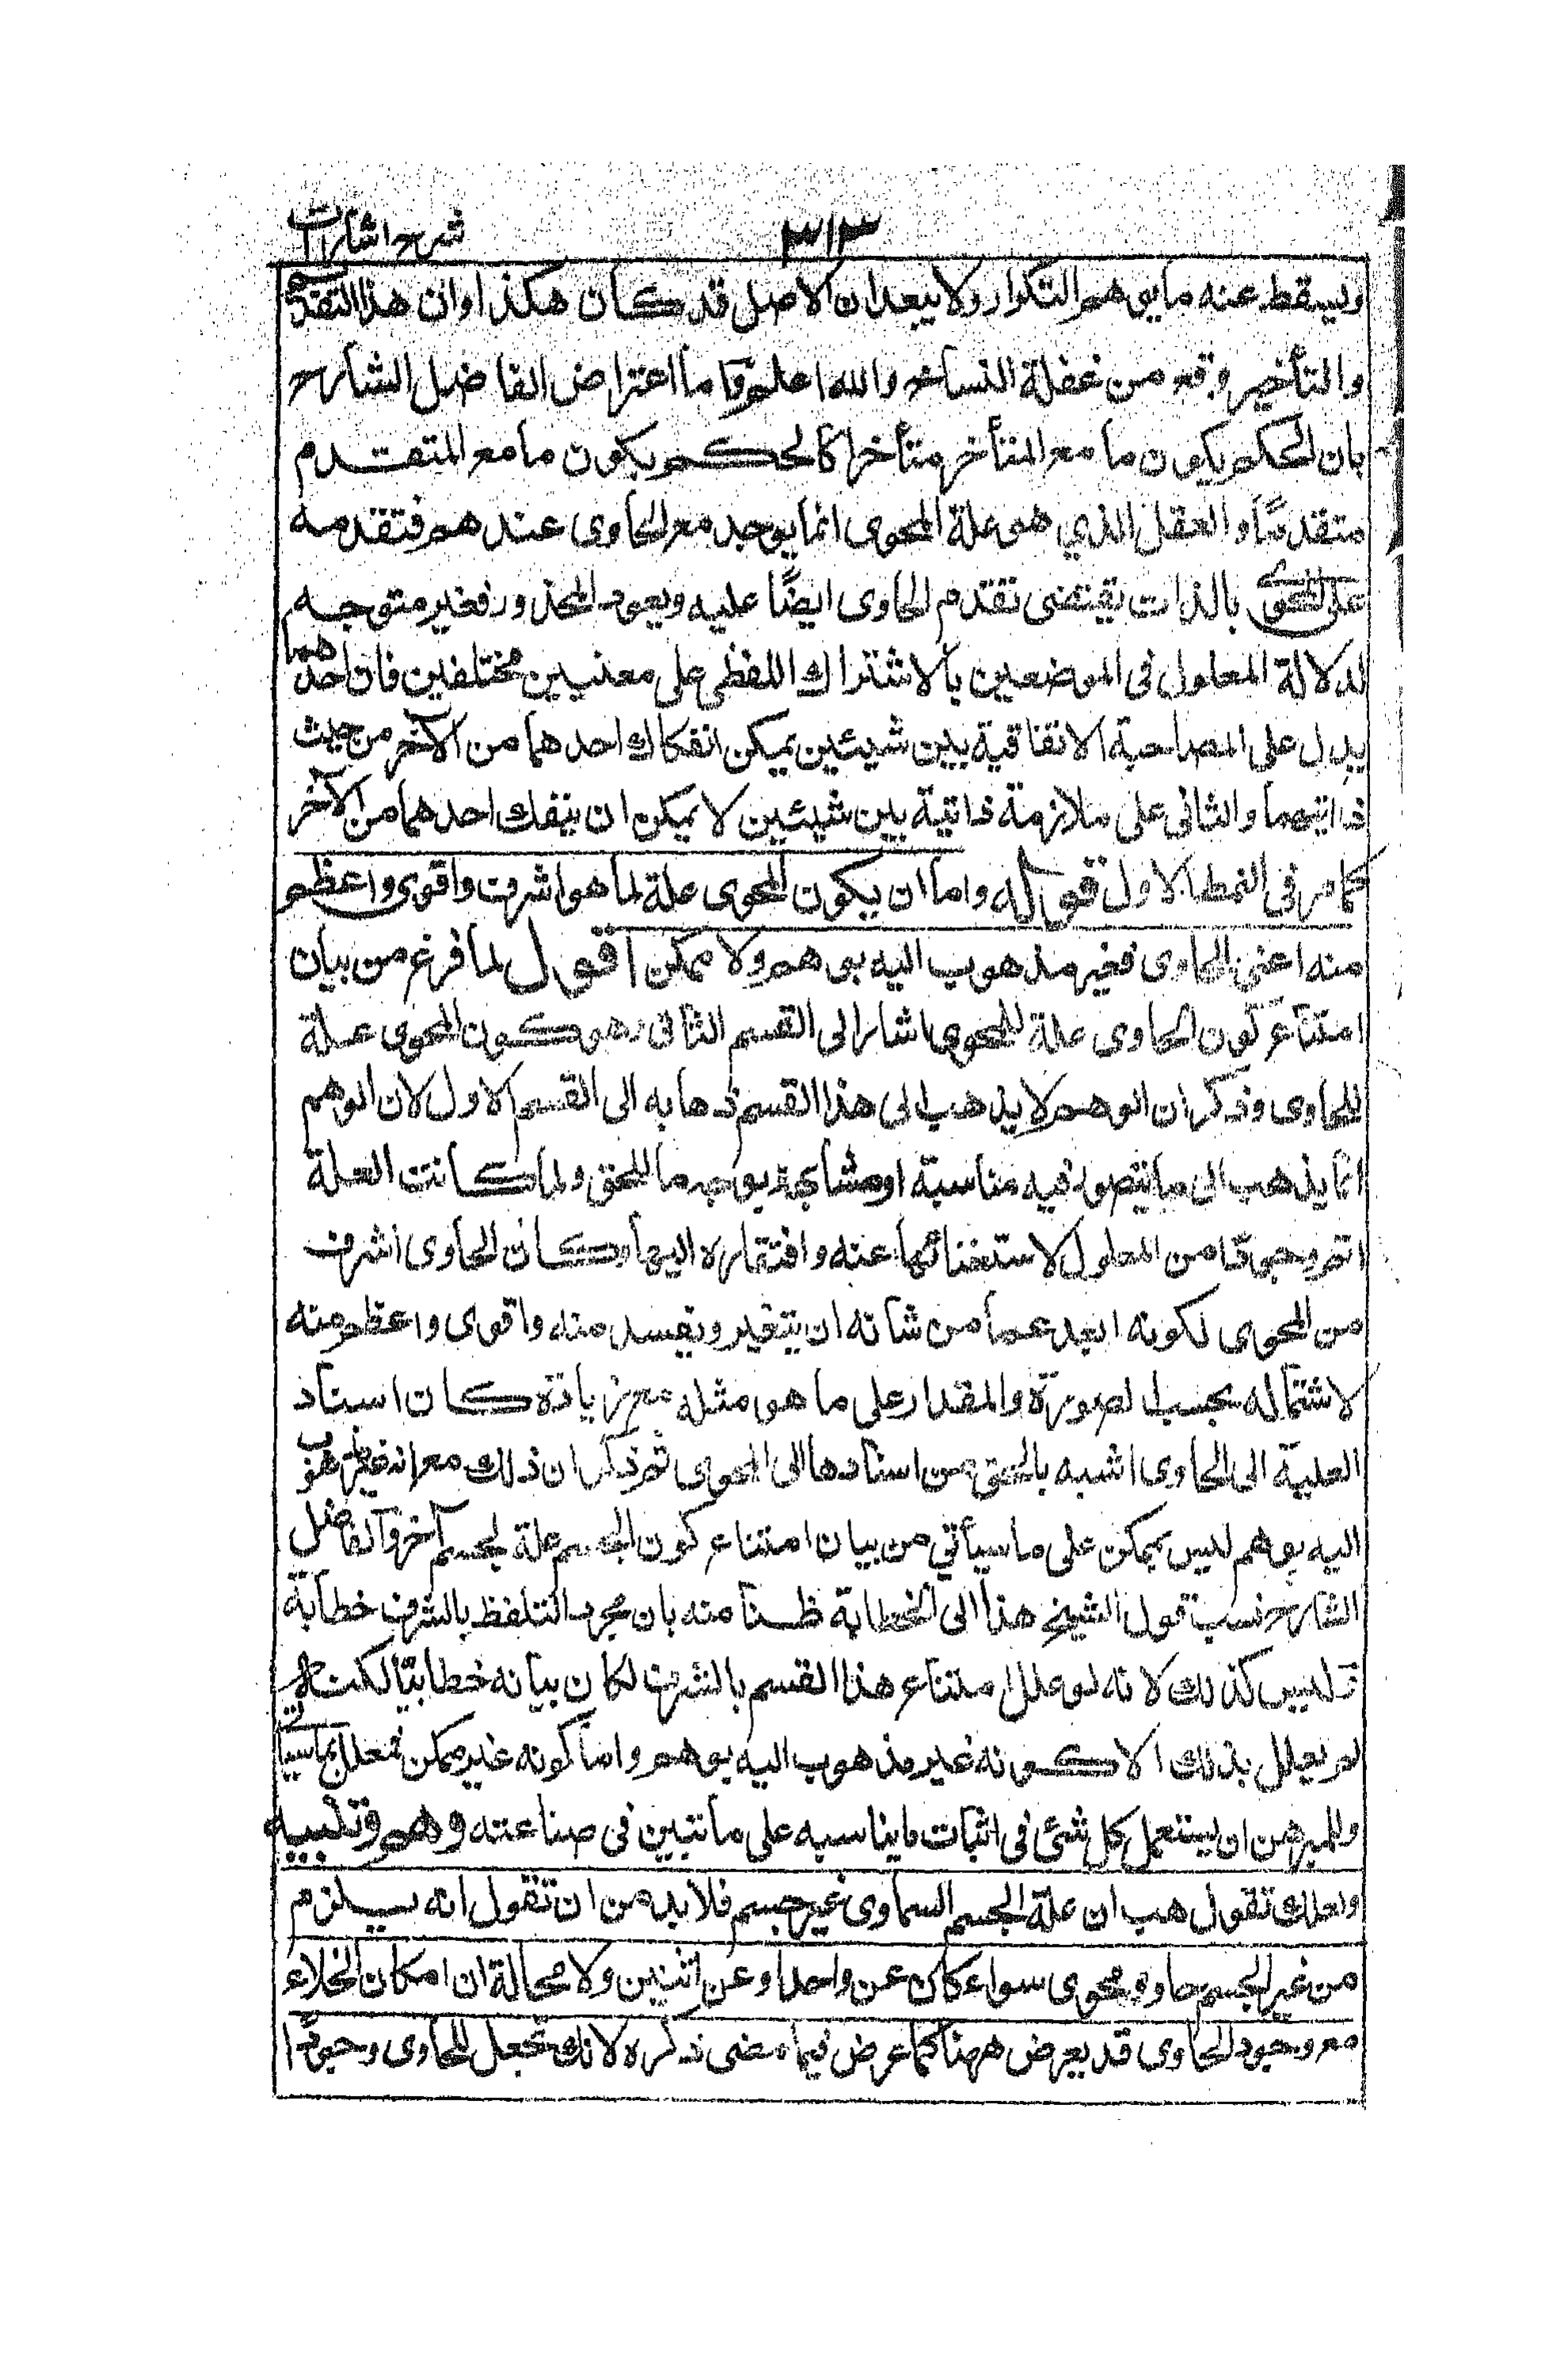 شرح اشارات
٣١٣
ويسقط عنه ما يوهم التكرار ولا يبعد ان الاصل قد كان هكذا وان هذا التقديم
والتأخير وقع من غفلة النساخ والله اعلم واما اعتراض الفاضل الشارح
بان الحكم بكون ما مع المتأخر متأخرا كالحكم بكون ما مع المتقدم
متقدما والعقل الذي هو علة المحوى انما يوجد مع الحاوى عندهم فتقدمه
على المحوى بالذات يقتضى تقدم الحاوى ايضًا عليه ويعود المحذور فغير متوجه
لدلالة المعلول فى الموضعين بالاشتراك اللفظى على معنيين مختلفين فان احدهما
يدل على المصاحبة الاتفاقية بين شيئين يمكن انفكاك احدهما من الآخر من حيث
ذاتيهما والثانى على ملازمة ذاتية بين شيئين لا يمكن ان ينفك احدهما من الآخر
كما مر فى النمط الاول قوله واما ان يكون المحوى علة لما هو اشرف واقوى واعظم
منه اعنى الحاوى فغير مذهوب اليه بوهم ولا ممكن اقول لما فرغ من بيان
امتناع كون الحاوى علة للمحوى اشار الى القسم الثانى وهو كون المحوى علة
للحاوى وذكر ان الوهم لا يذهب الى هذا القسم ذهابه الى القسم الاول لان الوهم
انما يذهب الى ما يتصور فيه مناسبة او مشابهة بوجه ما للحق ولما كانت العلة
اتم وجودًا من المعلول لاستغنائها عنه وافتقاره اليها وكان الحاوى اشرف
من المحوى لكونه ابعد عما من شانه ان يتغير ويفسد منه واقوى واعظم منه
لاشتماله بحسب الصورة والمقدار على ما هو مثله مع زيادة كان اسناد
العلية الى الحاوى اشبه بالحق من اسنادها الى المحوى ثم ذكر ان ذلك مع انه غير مذهوب
اليه بوهم ليس بممكن على ما سيأتي من بيان امتناع كون الجسم علة لجسم آخر والفاضل
الشارح نسب قول الشيخ هذا الى الخطابة ظنا منه بان مجرد التلفظ بالشرف خطابة
وليس كذلك لانه لو علل امتناع هذا القسم بالشرف لكان بيانه خطابيًا لكنه
لم يعلل بذلك الا كونه غير مذهوب اليه بوهم واما كونه غير ممكن فمعلل بما سيأتى
وللمبرهن ان يستعمل كل شئ فى اثبات ما يناسبه على ما تبين فى صناعته وهم وتنبيه
ولعلك تقول هب ان علة الجسم السماوى غير جسم فلا بد من ان تقول انه يلزم
من غير الجسم حاو ومحوى سواء كان عن واحد او عن اثنين ولا محالة ان امكان الخلاء
مع وجود الحاوى قد يعرض ههنا كما عرض فيما مضى ذكره لانك تجعل للحاوى وجودًا